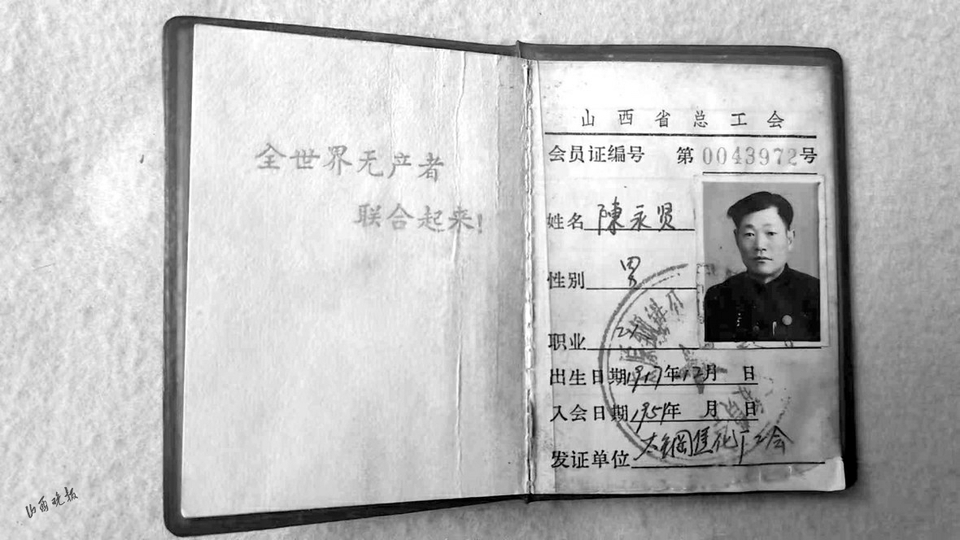 全世界无产者
联合起来!
山西省总工会
会员证编号 第0043972号
姓名 陳永贤
性别 男
职业 工人
出生日期1917年12月 日
入会日期1951年 月 日
发证单位 太钢焦化厂工会
山西晚报